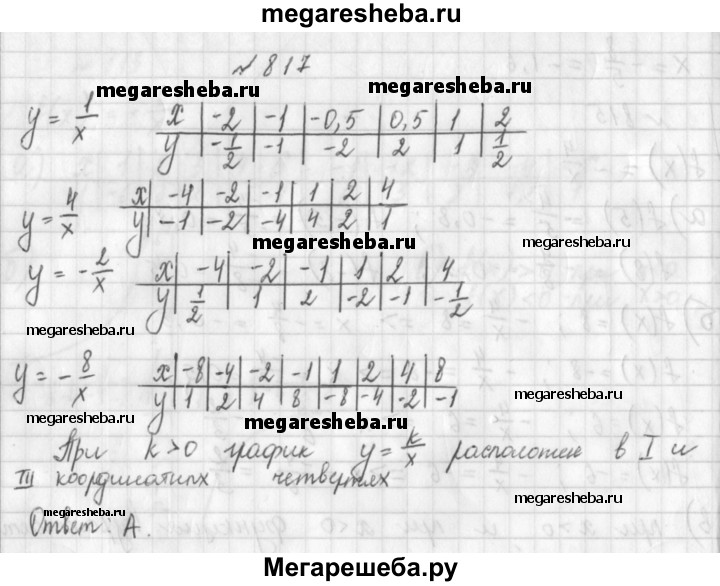 megaresheba.ru
№ 817
megaresheba.ru megaresheba.ru
y = 1/x
x | -2 | -1 | -0,5 | 0,5 | 1 | 2
y | -1/2 | -1 | -2 | 2 | 1 | 1/2
y = 4/x
x | -4 | -2 | -1 | 1 | 2 | 4
y | -1 | -2 | -4 | 4 | 2 | 1
megaresheba.ru megaresheba.ru
y = -2/x
x | -4 | -2 | -1 | 1 | 2 | 4
y | 1/2 | 1 | 2 | -2 | -1 | -1/2
megaresheba.ru megaresheba.ru
y = -8/x
x | -8 | -4 | -2 | -1 | 1 | 2 | 4 | 8
y | 1 | 2 | 4 | 8 | -8 | -4 | -2 | -1
megaresheba.ru
megaresheba.ru megaresheba.ru
При k>0 график y = k/x расположен в I и
III координатных четвертях
megaresheba.ru megaresheba.ru
Ответ: А.
Мегарешеба.ру